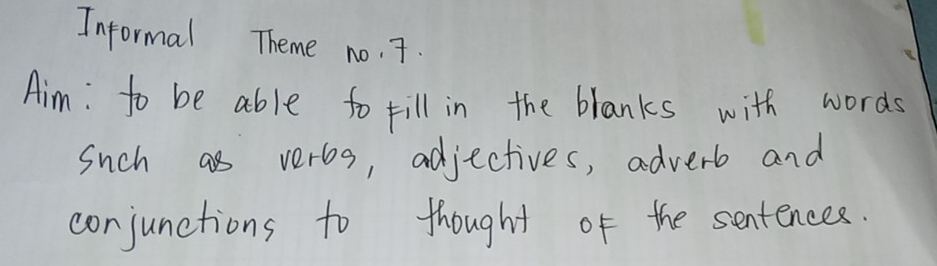 Informal Theme no. 7.
Aim: to be able to fill in the blanks with words
such as verbs, adjectives, adverb and
conjunctions to thought of the sentences.